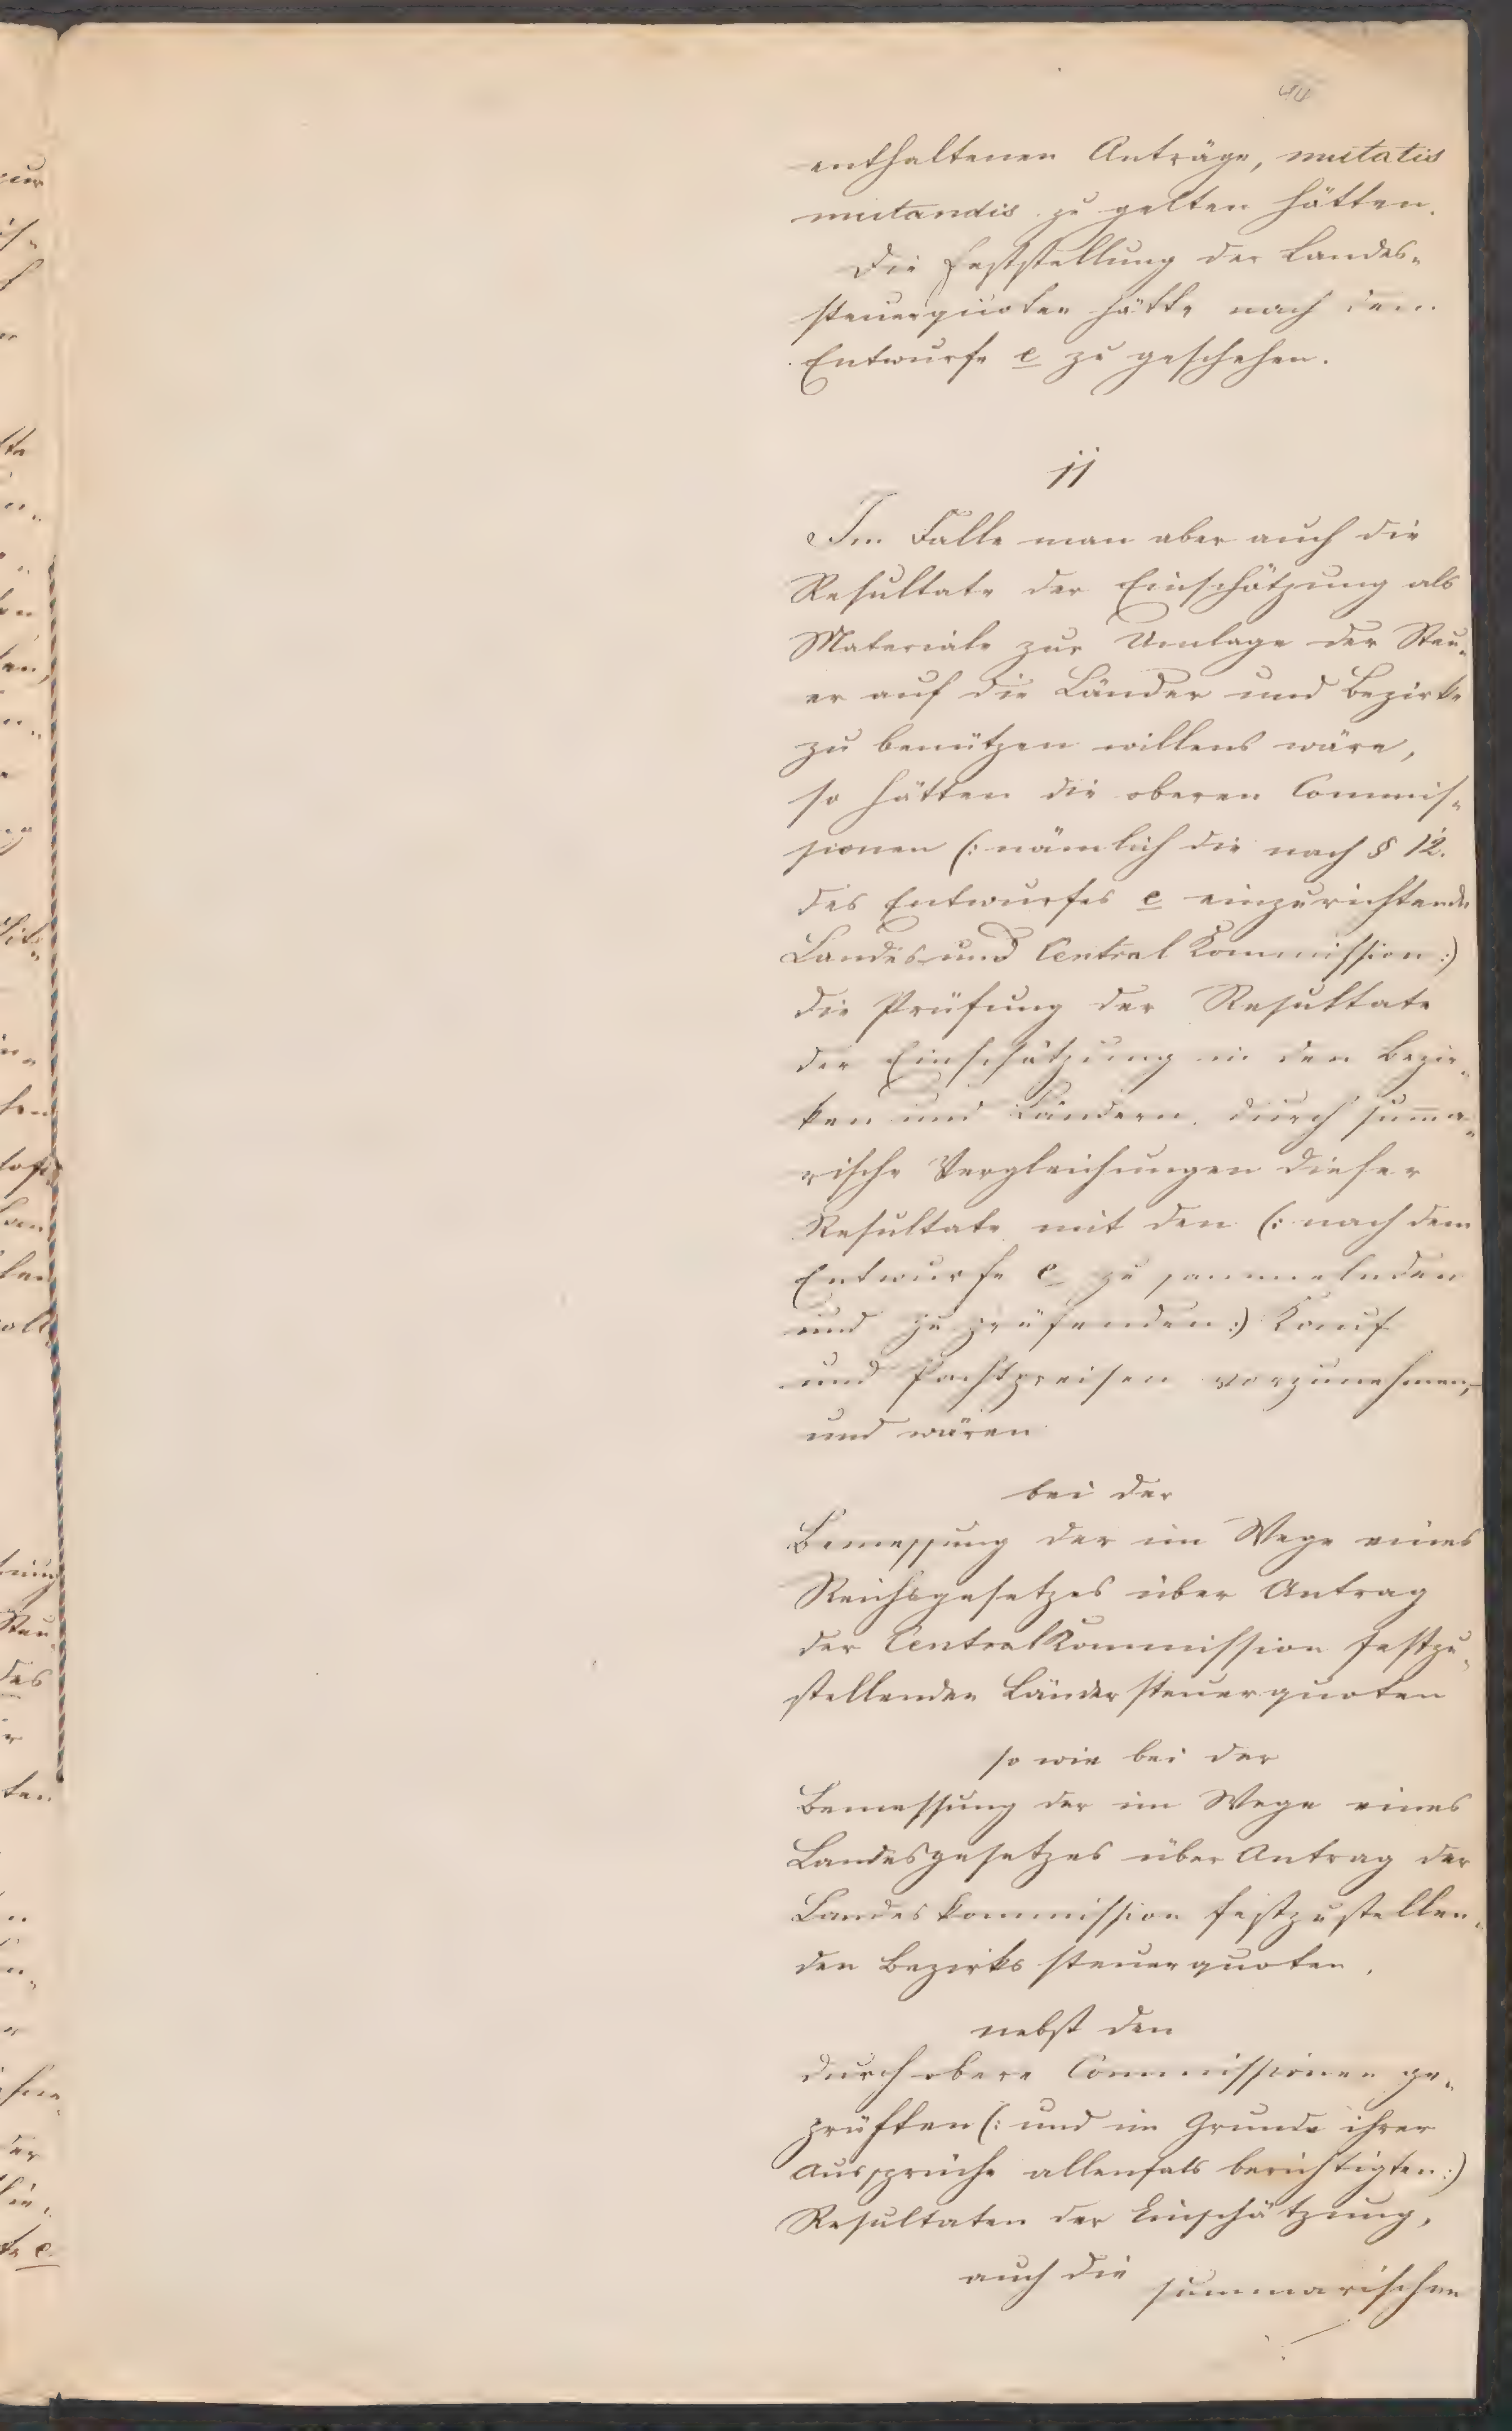 enthaltenen Anträge, mutatis
mutandis zu gelten hätten.
Die Feststellung der Landes-
steuerquoten hätte nach dem
Entwurfe e zu geschehen.
jj
Im Falle man aber auch die
Resultate der Einschätzung als
Materiale zur Umlage der Steu-
er auf die Länder und Bezirke
zu benützen willens wäre,
so hätten die oberen Commis-
sionen (: nämlich die nach § 12.
des Entwurfes e einzurichtende
Landes und Central Kommission :)
die Prüfung der Resultate
der Einschätzung in den Bezir-
ken und Ländern durch summa-
rische Vergleichungen dieser
Resultate mit den (: nach dem
Entwurfe e zu sammelnden
und zu prüfenden :) Kauf
und Pachtpreisen vorzunehmen,
und wären
bei der
Bemessung der im Wege eines
Reichsgesetzes über Antrag
der CentralKommission festzu-
stellenden Ländersteuerquoten
so wie bei der
Bemessung der im Wege eines
Landesgesetzes über Antrag der
Landeskommission festzustellen-
den Bezirkssteuerquoten,
nebst den
durch obere Commissionen ge-
prüften (: und im Grunde ihrer
Aussprüche allenfalls berichtigten :)
Resultaten der Einschätzung,
auch die summarischen